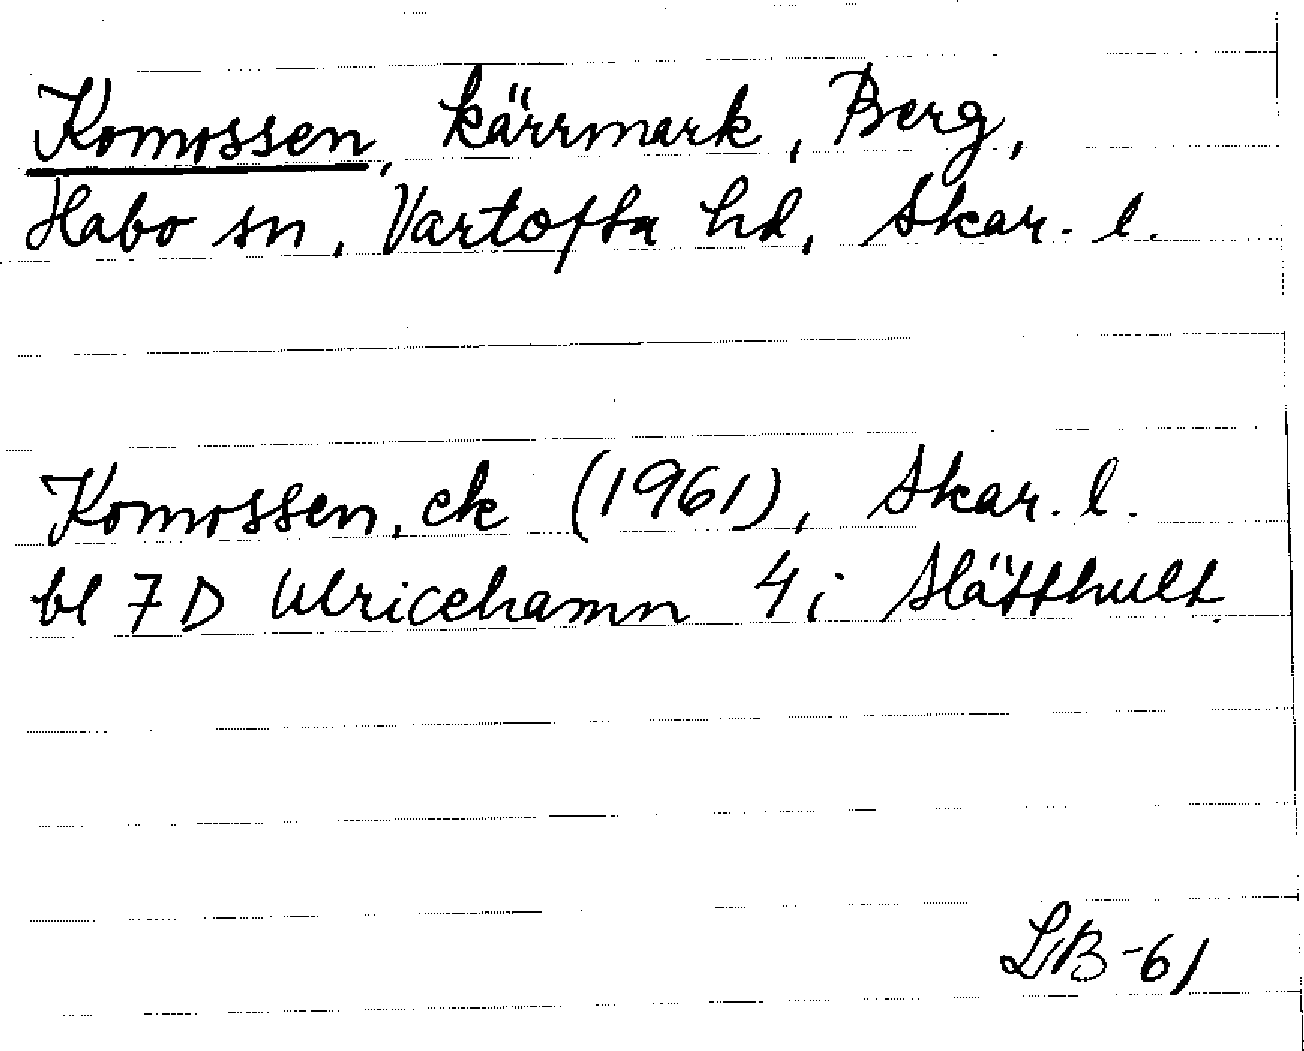 Komossen, kärrmark, Berg,
Habo sn, Vartofta hd, Skar. l.
Komossen, ek (1961), Skar. l.
bl 7 D Ulricehamn 4 i Slätthult.
LB-61